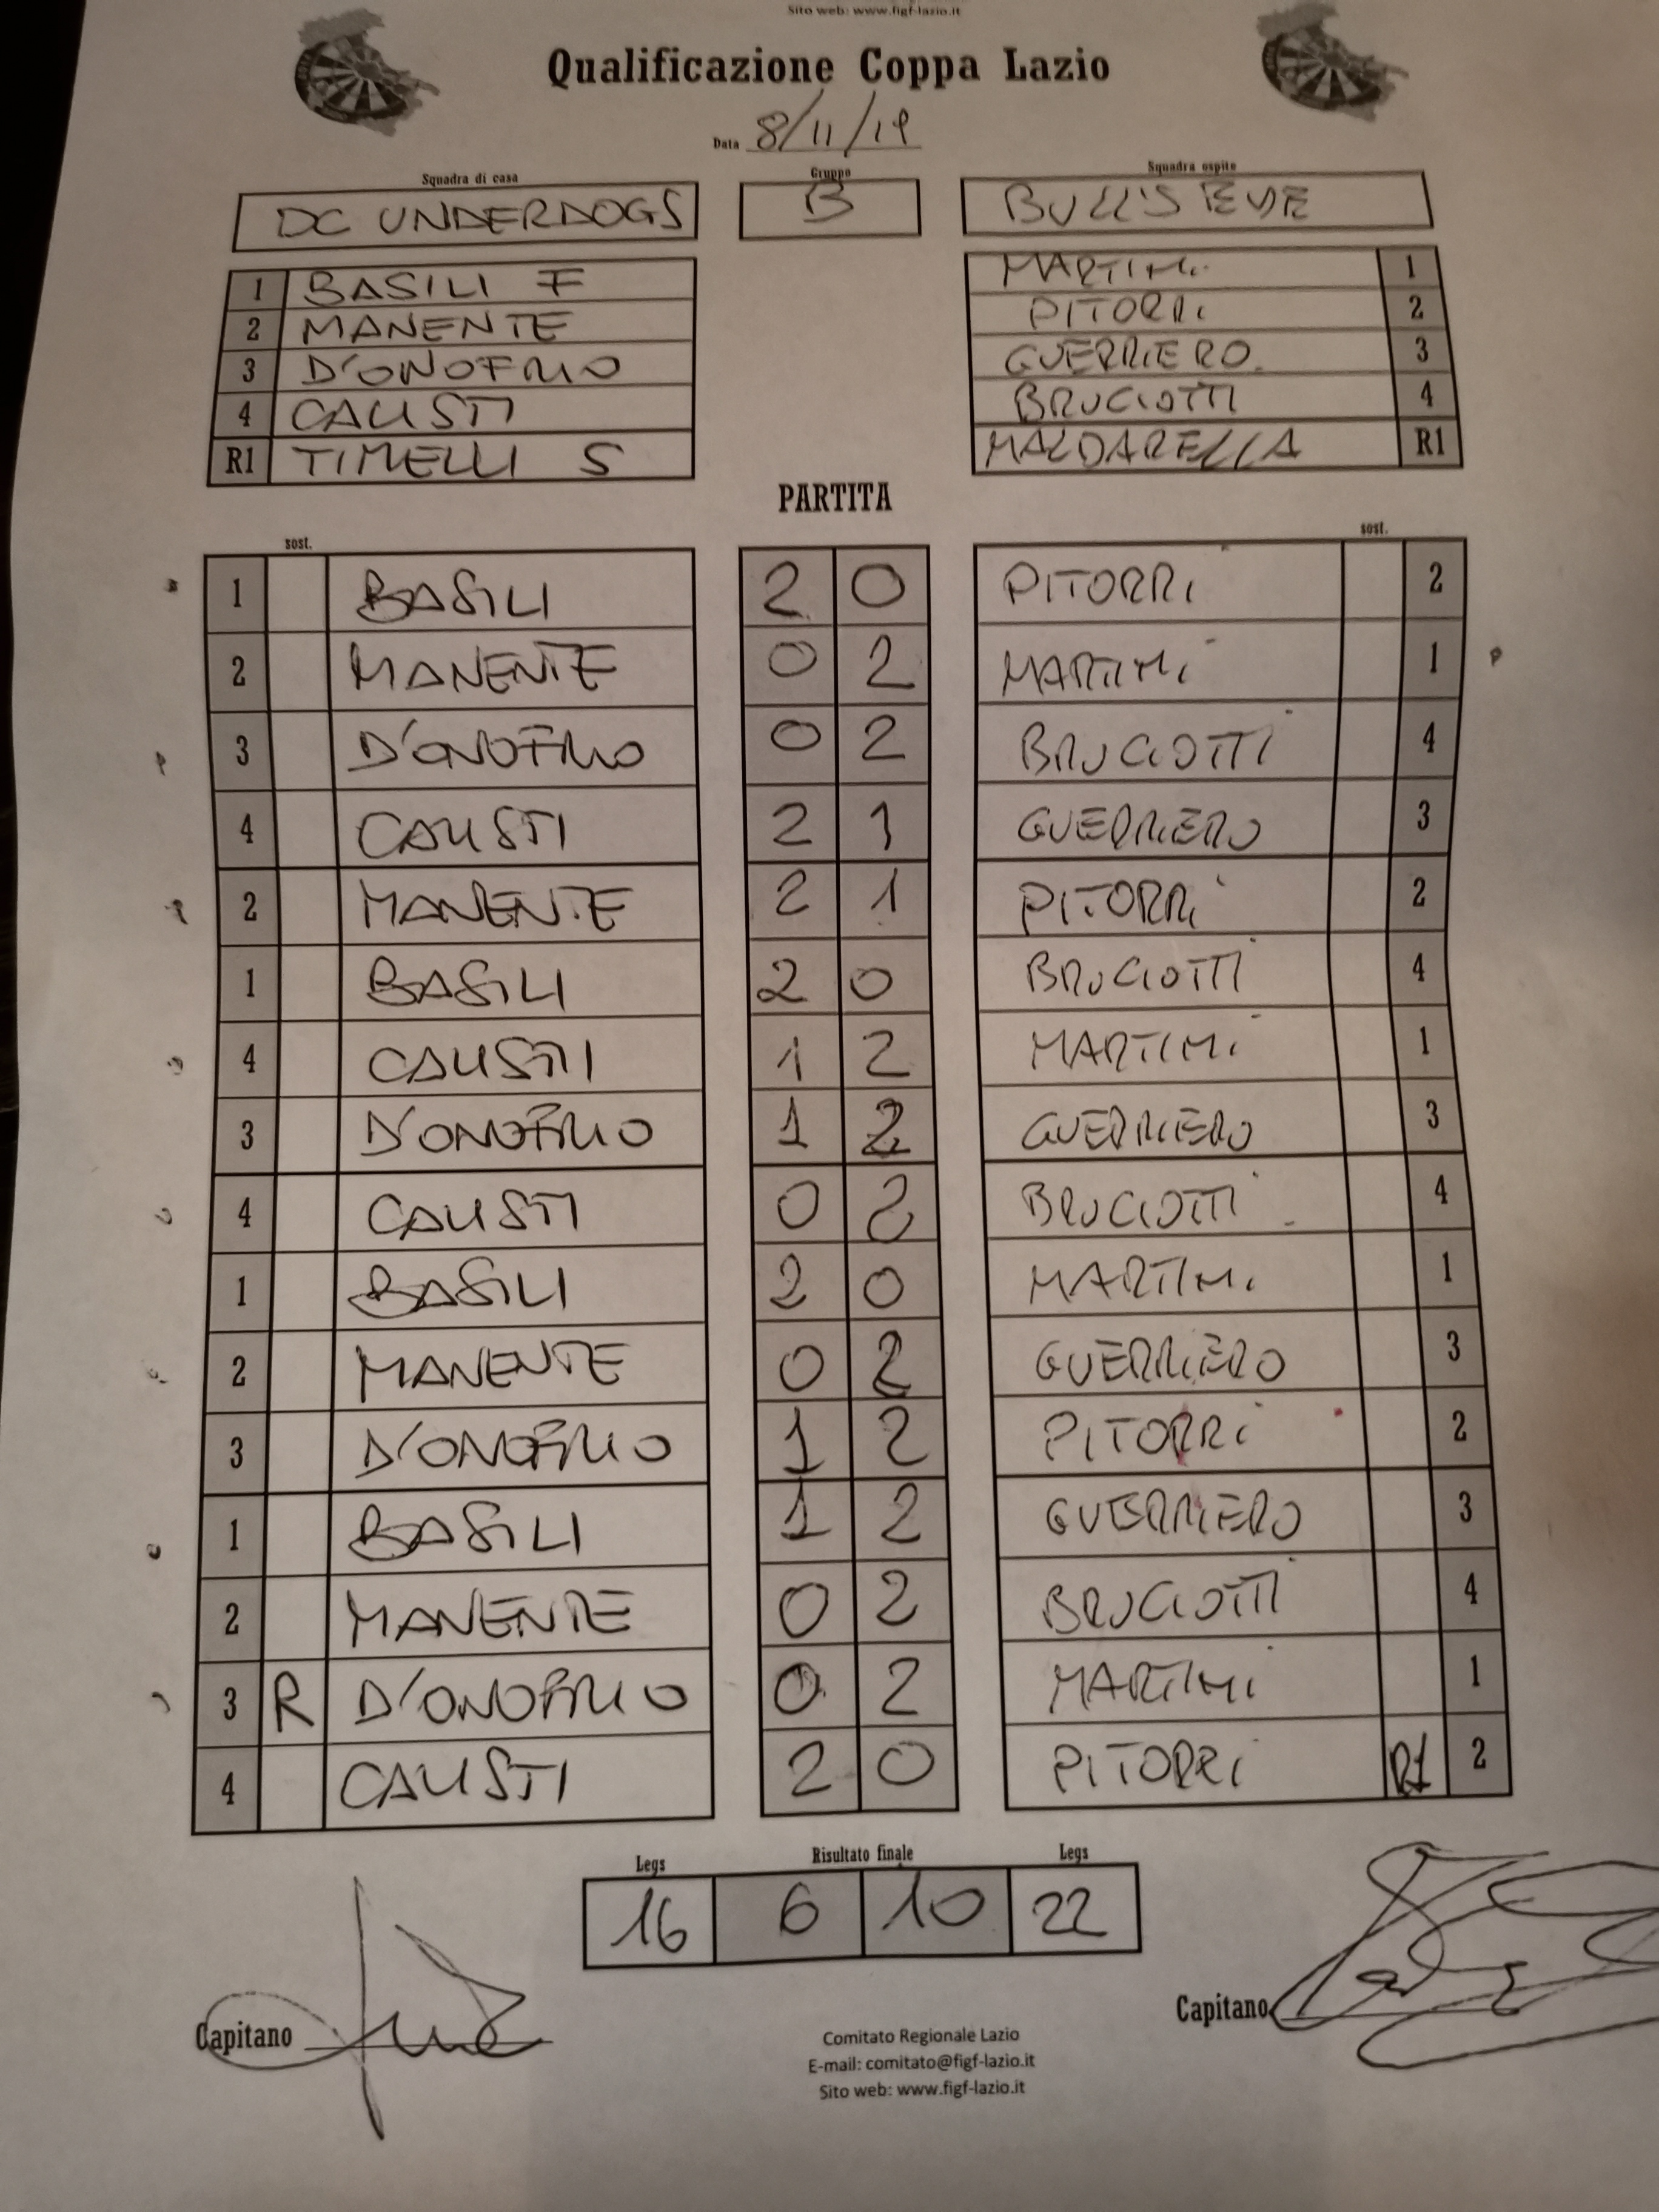 Sito web: www.figf-lazio.it
Qualificazione Coppa Lazio
Data 8/11/19
Squadra di casa Gruppo Squadra ospite
DC UNDERDOGS B BULL'S EYE
1 BASILI F MARTINI 1
2 MANENTE PITORRI 2
3 D'ONOFRIO GUERRIERO 3
4 CALISTI BRUCIOTTI 4
R1 TIMELLI S MALDARELLA R1
PARTITA
sost. sost.
1 BASILI 2 0 PITORRI 2
2 MANENTE 0 2 MARTINI 1
3 D'ONOFRIO 0 2 BRUCIOTTI 4
4 CALISTI 2 1 GUERRIERO 3
2 MANENTE 2 1 PITORRI 2
1 BASILI 2 0 BRUCIOTTI 4
4 CALISTI 1 2 MARTINI 1
3 D'ONOFRIO 1 2 GUERRIERO 3
4 CALISTI 0 2 BRUCIOTTI 4
1 BASILI 2 0 MARTINI 1
2 MANENTE 0 2 GUERRIERO 3
3 D'ONOFRIO 1 2 PITORRI 2
1 BASILI 1 2 GUERRIERO 3
2 MANENTE 0 2 BRUCIOTTI 4
3 R D'ONOFRIO 0 2 MARTINI 1
4 CALISTI 2 0 PITORRI R1 2
Legs Risultato finale Legs
16 6 10 22
Capitano Capitano
Comitato Regionale Lazio
E-mail: comitato@figf-lazio.it
Sito web: www.figf-lazio.it